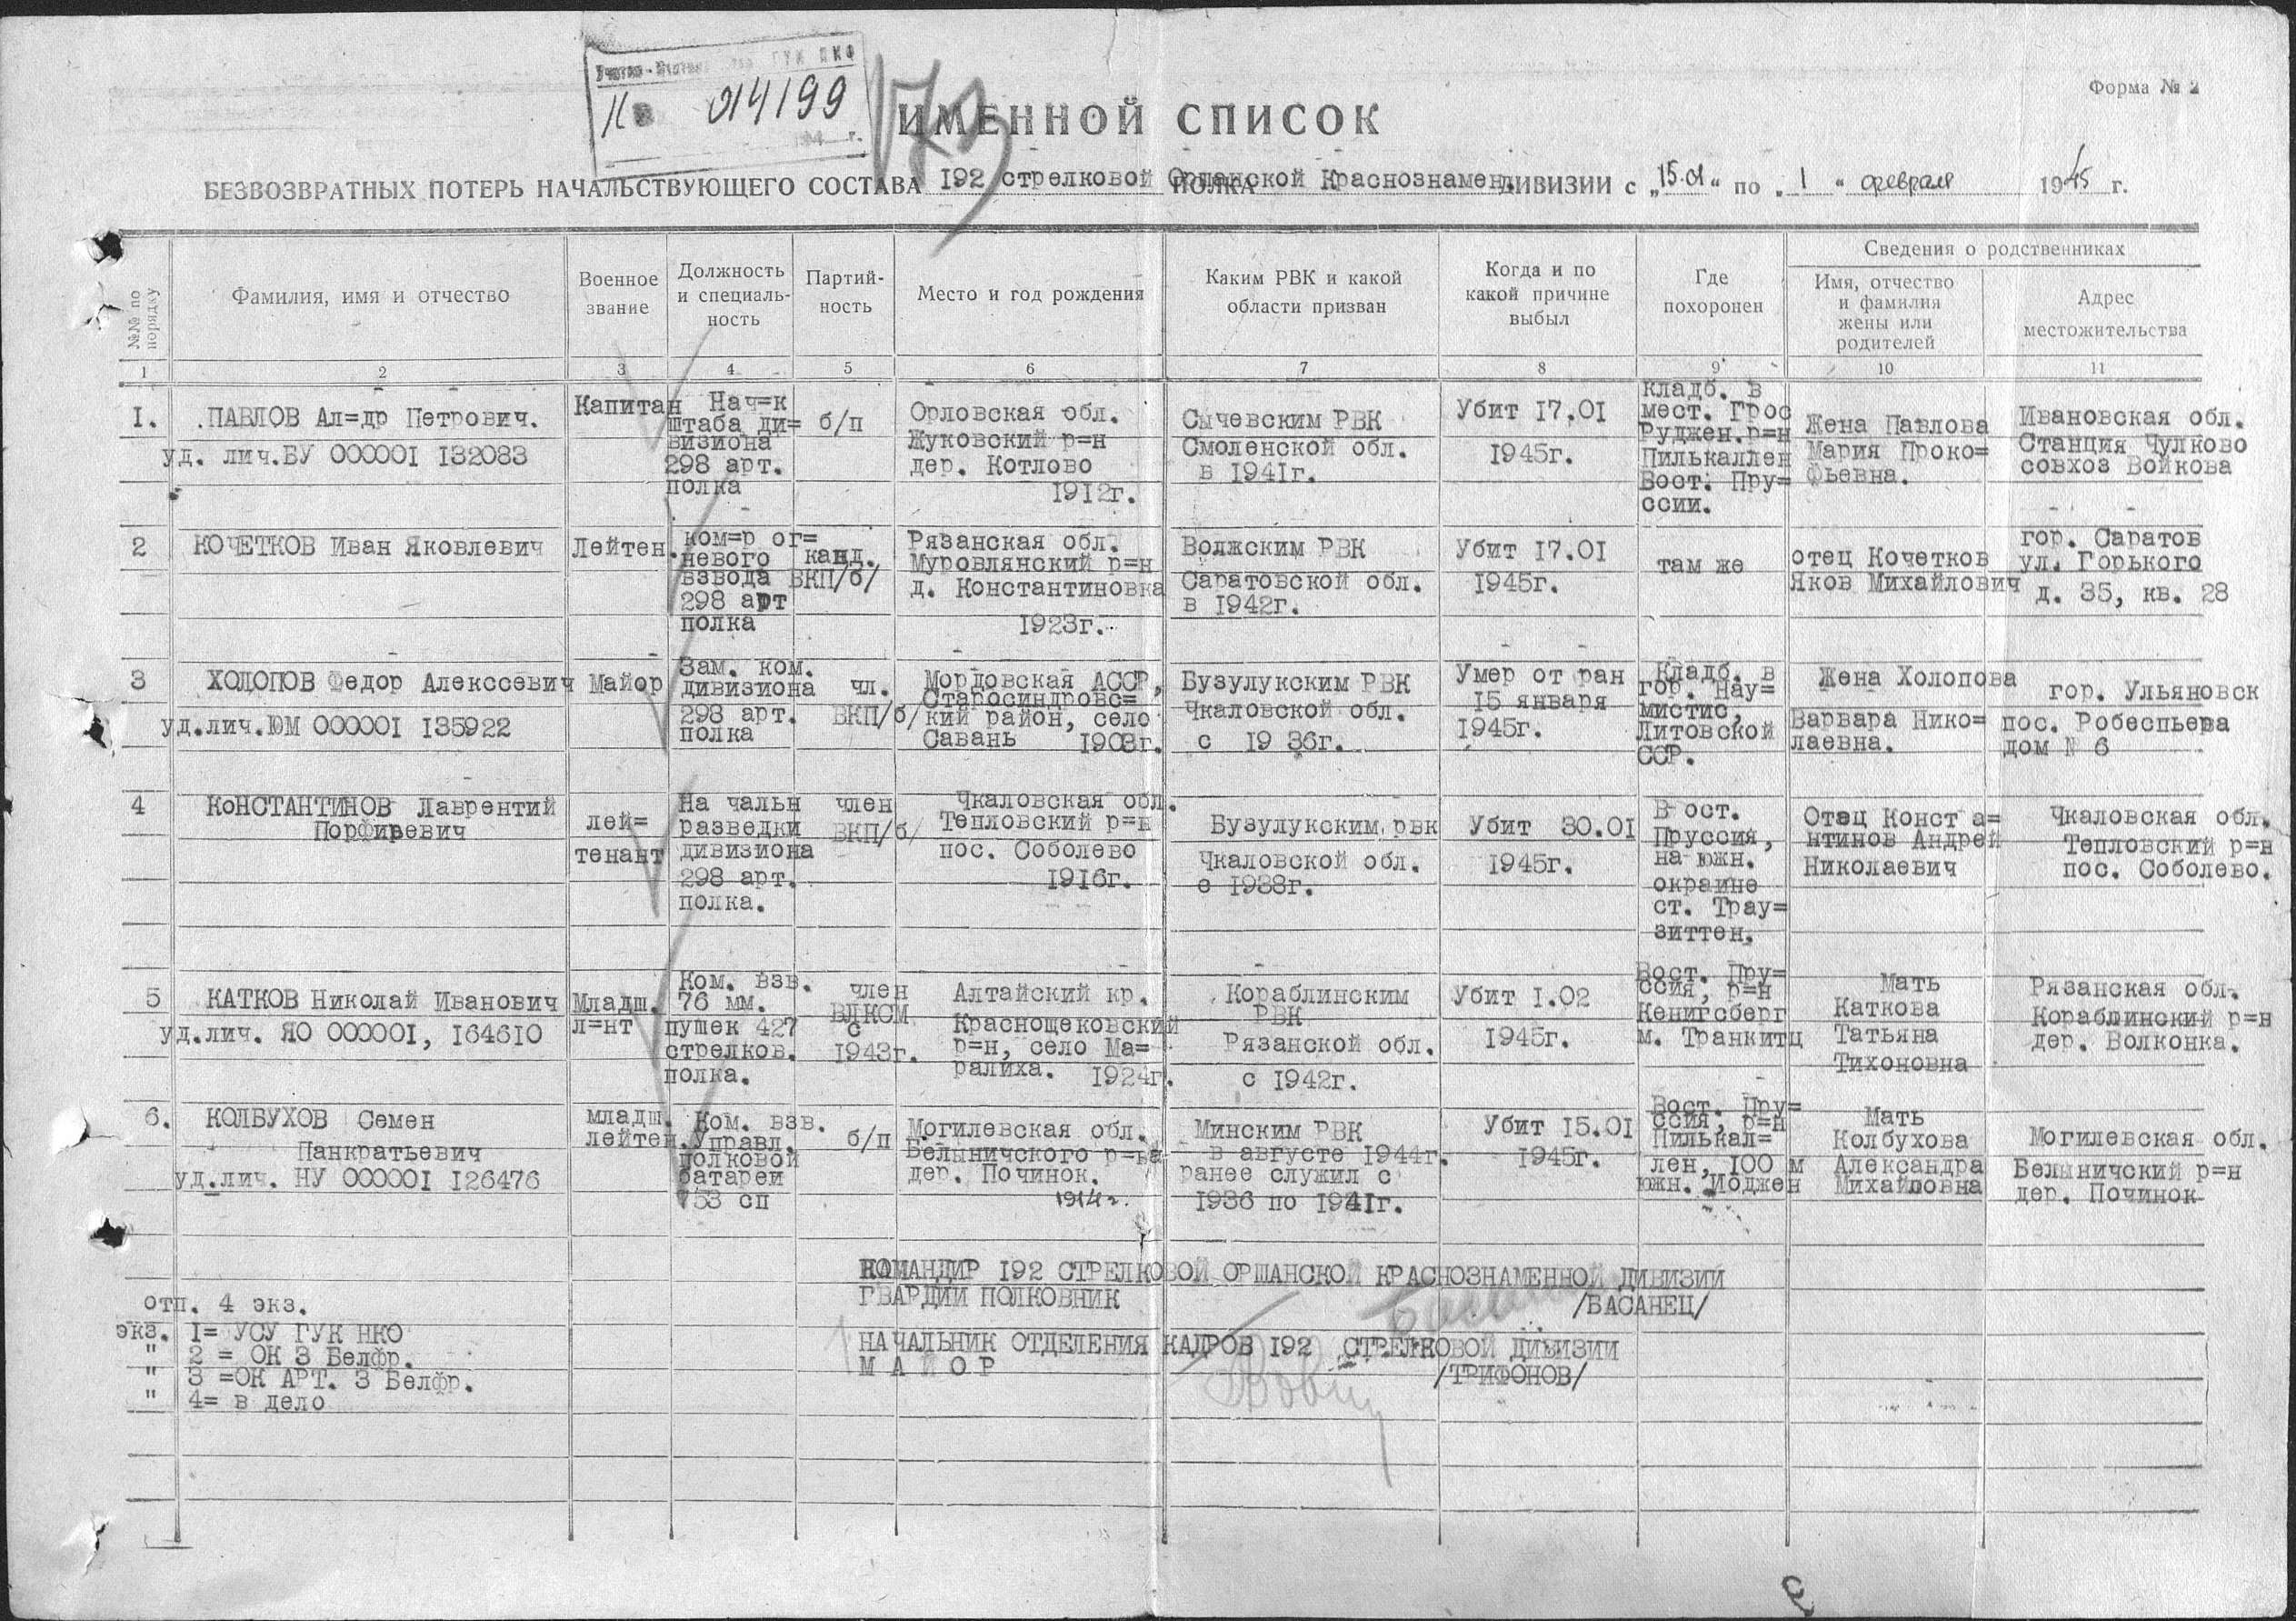 Форма № 2
014199
ИМЕННОЙ СПИСОК
БЕЗВОЗВРАТНЫХ ПОТЕРЬ НАЧАЛЬСТВУЮЩЕГО СОСТАВА 192 стрелковой Оршанской Краснознамен. ПОЛКА ДИВИЗИИ с „15.01“ по „1“ февраля 1945 г.
№№ по порядку
Фамилия, имя и отчество
Военное звание
Должность и специаль-
ность
Партий-
ность
Место и год рождения
Каким РВК и какой
области призван
Когда и по
какой причине
выбыл
Где
похоронен
Сведения о родственниках
Имя, отчество
и фамилия
жены или
родителей
Адрес
местожительства
1 2 3 4 5 6 7 8 9 10 11
I.
ПАВЛОВ Ал=др Петрович.
уд. лич.БУ 000001 132083
Капитан
Нач=к
штаба ди=
визиона
298 арт.
полка
б/п
Орловская обл.
Жуковский р=н
дер. Котлово
1912г.
Сычевским РВК
Смоленской обл.
в 1941г.
Убит 17.01
1945г.
кладб. в
мест. Грос
Руджен.р=н
Пилькаллен
Вост. Пру=
ссии.
Жена Павлова
Мария Проко=
фьевна.
Ивановская обл.
Станция Чулково
совхоз Войкова
2
КОЧЕТКОВ Иван Яковлевич
Лейтен.
ком=р ог=
невого
взвода
298 арт
полка
канд.
ВКП/б/
Рязанская обл.
Муровлянский р=н
д. Константиновка
1923г.
Волжским РВК
Саратовской обл.
в 1942г.
Убит 17.01
1945г.
там же
отец Кочетков
Яков Михайлович
гор. Саратов
ул. Горького
д. 35, кв. 28
3
ХОЛОПОВ Федор Алексеевич
уд.лич.ЮМ 000001 135922
Майор
Зам. ком.
дивизиона
298 арт.
полка
чл.
ВКП/б/
Мордовская АССР,
Старосиндровс=
кий район, село
Савань 1908г.
Бузулукским РВК
Чкаловской обл.
с 19 36г.
Умер от ран
15 января
1945г.
Кладб. в
гор. Нау=
мистис,
Литовской
ССР.
Жена Холопова
Варвара Нико=
лаевна.
гор. Ульяновск
пос. Робеспьера
дом № 6
4
КОНСТАНТИНОВ Лаврентий
Порфиревич
лей=
тенант
На чальн
разведки
дивизиона
298 арт.
полка.
член
ВКП/б/
Чкаловская обл.
Тепловский р=н
пос. Соболево
1916г.
Бузулукским рвк
Чкаловской обл.
с 1938г.
Убит 30.01
1945г.
В ост.
Пруссия,
на южн.
окраине
ст. Трау=
зиттен.
Отец Конст а=
нтинов Андрей
Николаевич
Чкаловская обл.
Тепловский р=н
пос. Соболево.
5
КАТКОВ Николай Иванович
уд.лич. ЯО 000001, 164610
Младш.
л=нт
Ком. взв.
76 мм.
пушек 427
стрелков.
полка.
член
ВЛКСМ
с
1943г.
Алтайский кр.
Краснощековский
р=н, село Ма=
ралиха. 1924г.
Кораблинским
РВК
Рязанской обл.
с 1942г.
Убит 1.02
1945г.
Вост. Пру=
ссия, р=н
Кенигсберг
м. Транкитц
Мать
Каткова
Татьяна
Тихоновна
Рязанская обл.
Кораблинский р=н
дер. Волконка.
6.
КОЛБУХОВ Семен
Панкратьевич
уд.лич. НУ 000001 126476
младш.
лейтен.
Ком. взв.
Управл.
полковой
батареи
753 сп
б/п
Могилевская обл.
Белыничского р=на
дер. Починок.
1914г.
Минским РВК
в августе 1944г.
ранее служил с
1936 по 1941г.
Убит 15.01
1945г.
Вост. Пру=
ссия, р=н
Пилькал=
лен, 100 м
южн. Иоджен
Мать
Колбухова
Александра
Михайловна
Могилевская обл.
Белыничский р=н
дер. Починок
КОМАНДИР 192 СТРЕЛКОВОЙ ОРШАНСКОЙ КРАСНОЗНАМЕННОЙ ДИВИЗИИ
ГВАРДИИ ПОЛКОВНИК /БАСАНЕЦ/
НАЧАЛЬНИК ОТДЕЛЕНИЯ КАДРОВ 192 СТРЕЛКОВОЙ ДИВИЗИИ
М А Й О Р /ТРИФОНОВ/
отп. 4 экз.
экз. 1= УСУ ГУК НКО
" 2 = ОК 3 Белфр.
" 3 =ОК АРТ. 3 Белфр.
" 4= в дело